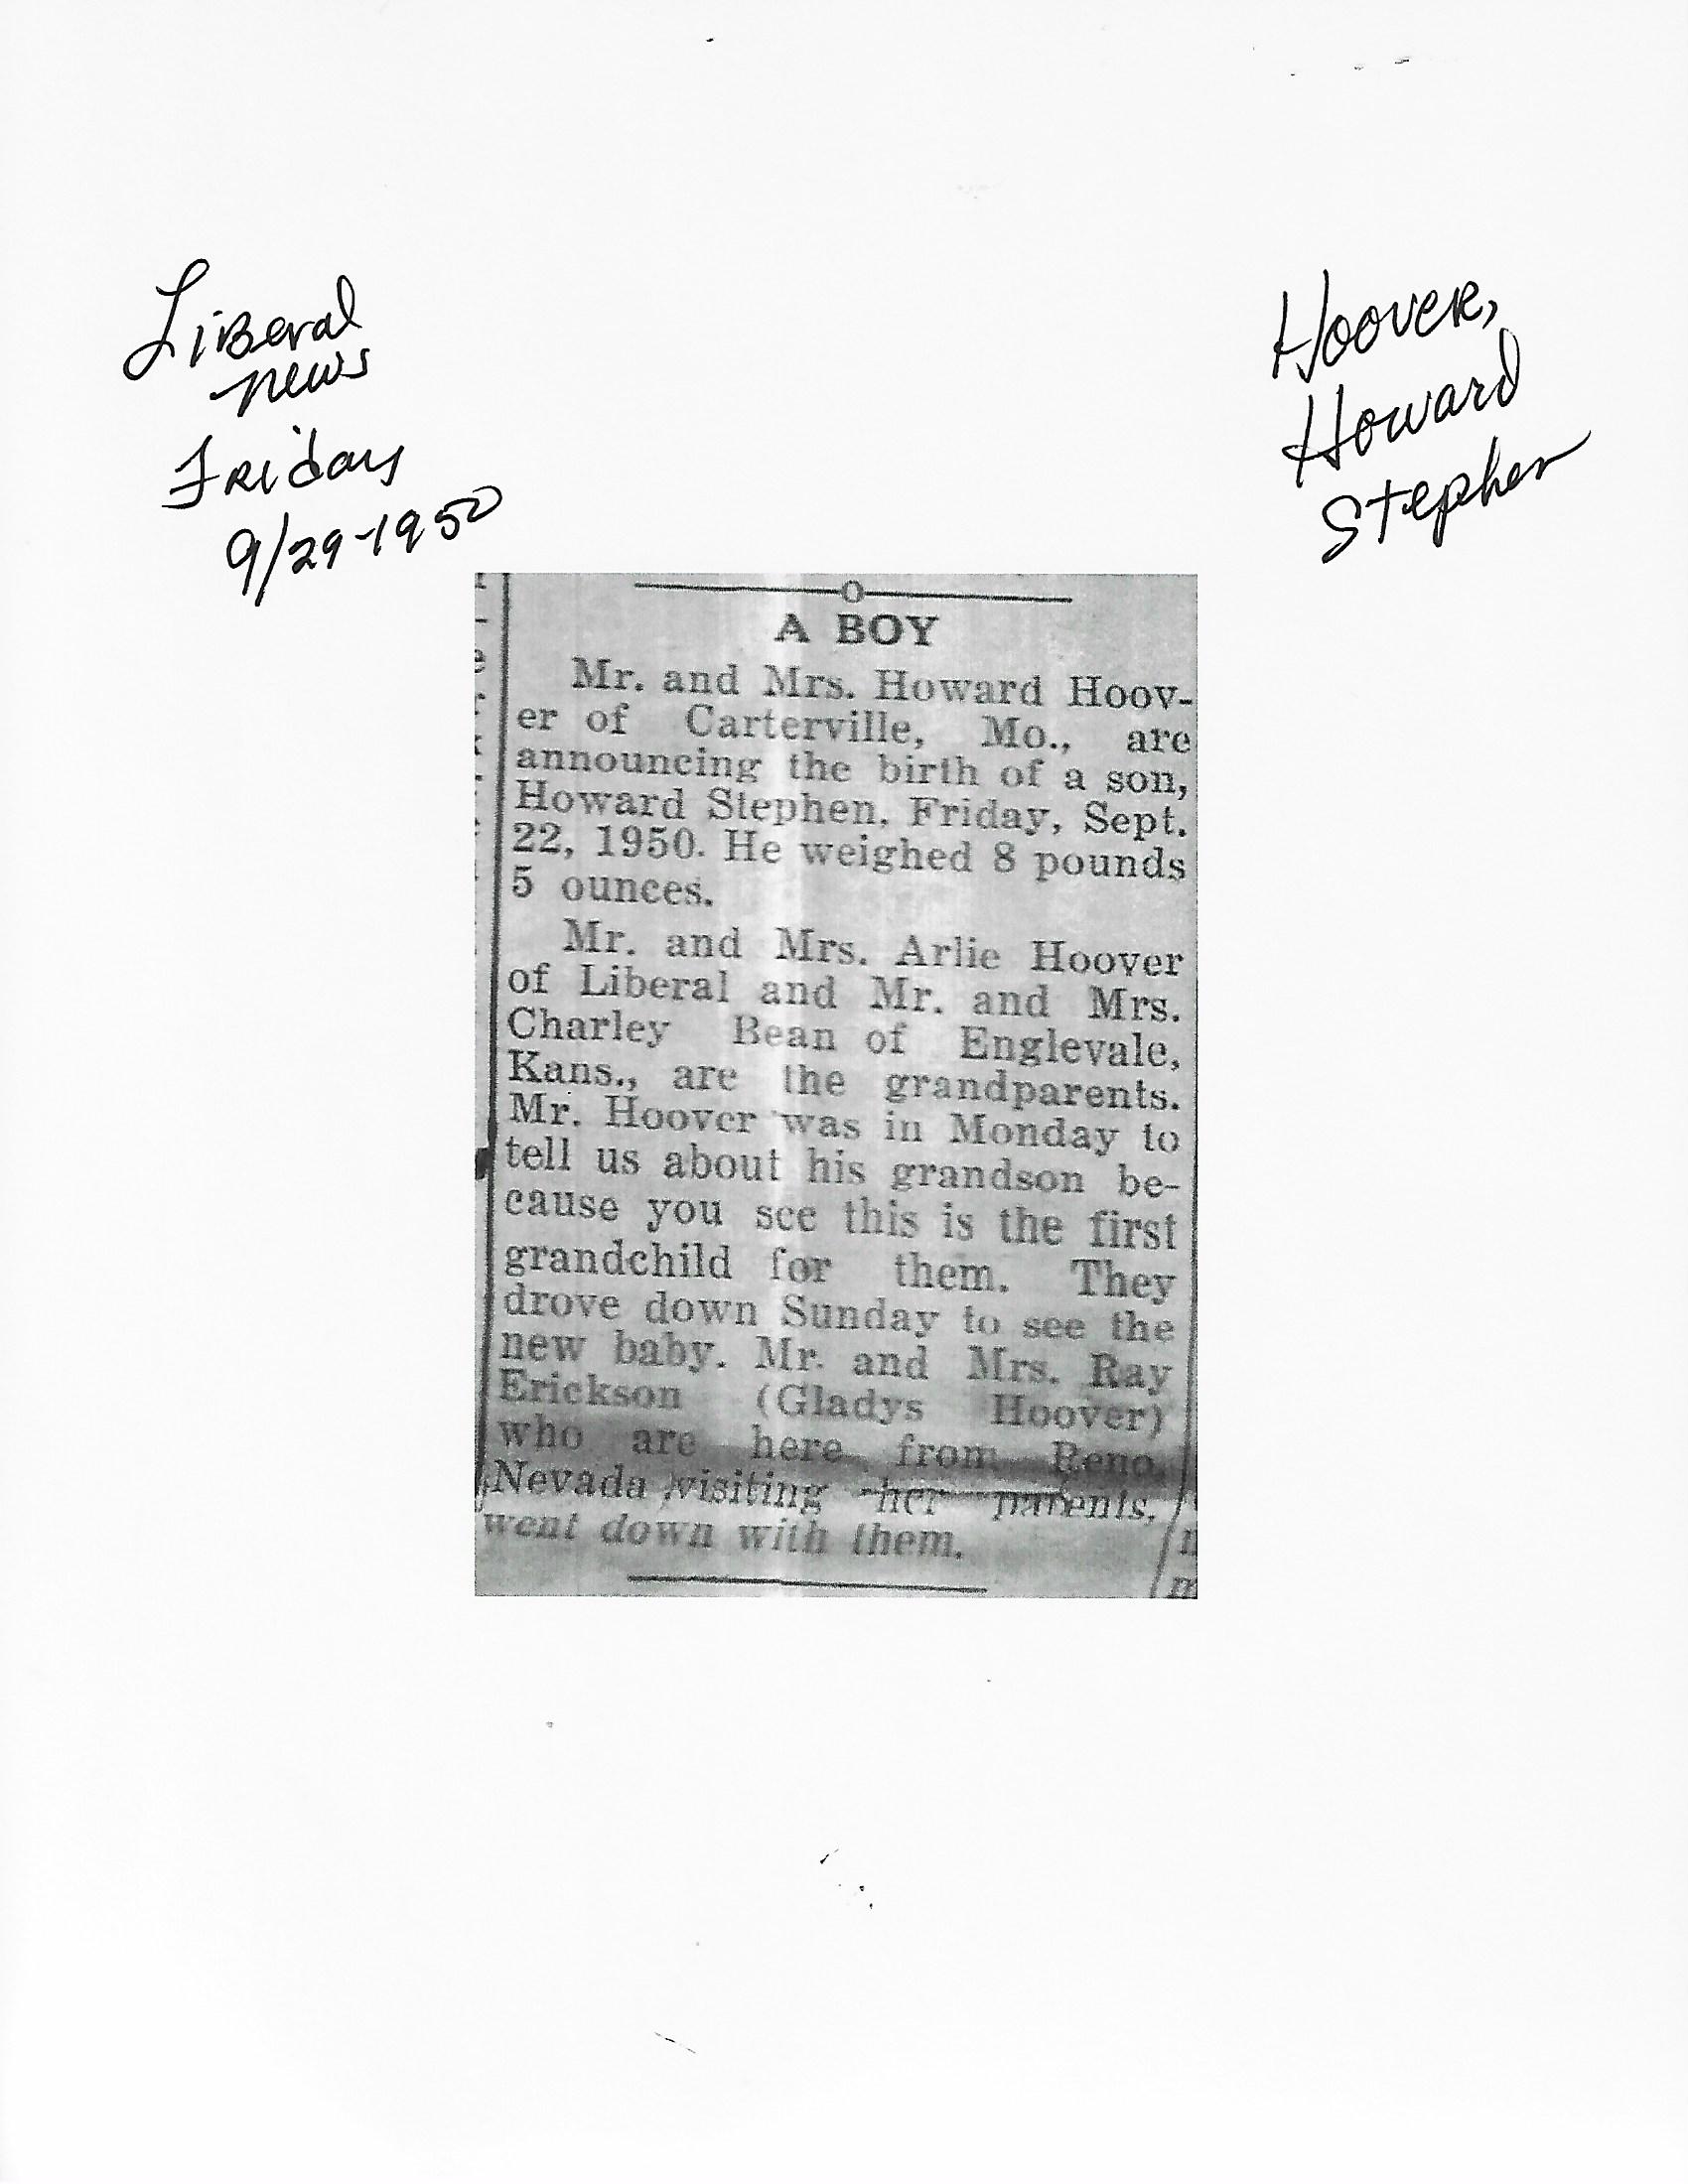 Liberal
News
Friday
9/29-1950
Hoover,
Howard
Stephen
A BOY
Mr. and Mrs. Howard Hoov-
er of Carterville, Mo., are
announcing the birth of a son,
Howard Stephen, Friday, Sept.
22, 1950. He weighed 8 pounds
5 ounces.
Mr. and Mrs. Arlie Hoover
of Liberal and Mr. and Mrs.
Charley Bean of Englevale,
Kans., are the grandparents.
Mr. Hoover was in Monday to
tell us about his grandson be-
cause you see this is the first
grandchild for them. They
drove down Sunday to see the
new baby. Mr. and Mrs. Ray
Erickson (Gladys Hoover)
who are here from Reno,
Nevada visiting her parents,
went down with them.